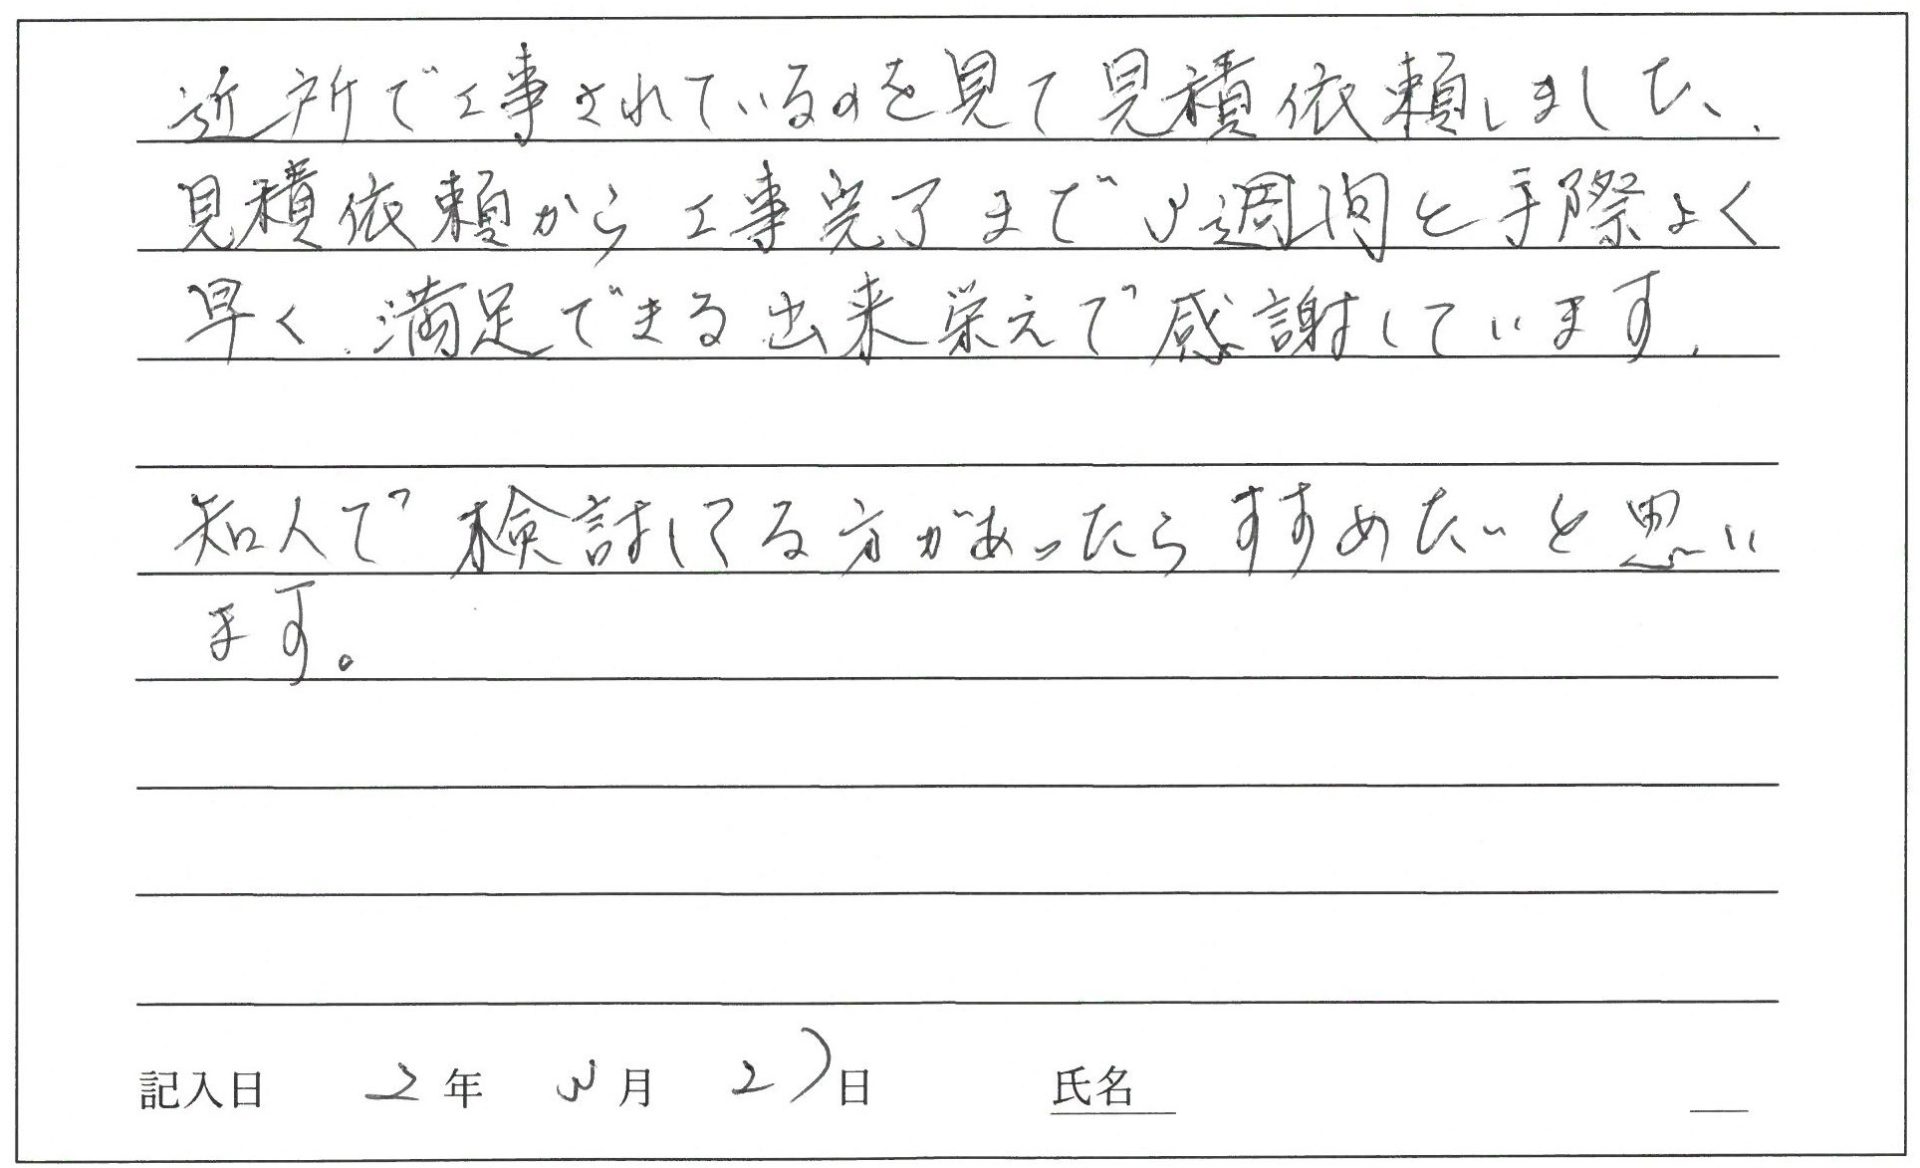 近所で工事されているのを見て見積依頼しました、
見積依頼から工事完了まで3週間と手際よく
早く、満足できる出来栄えで感謝しています.
知人で検討してる方があったらすすめたいと思い
ます。
記入日 2年 3月 27日 氏名